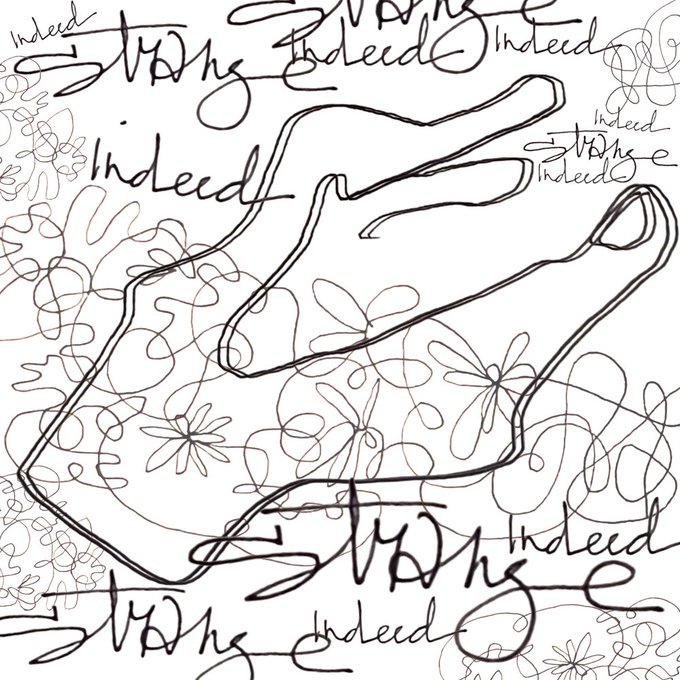 Indeed
Strange
Strange
Indeed
Indeed
Indeed
Indeed
Strange
Indeed
Strange
Indeed
Strange
Indeed